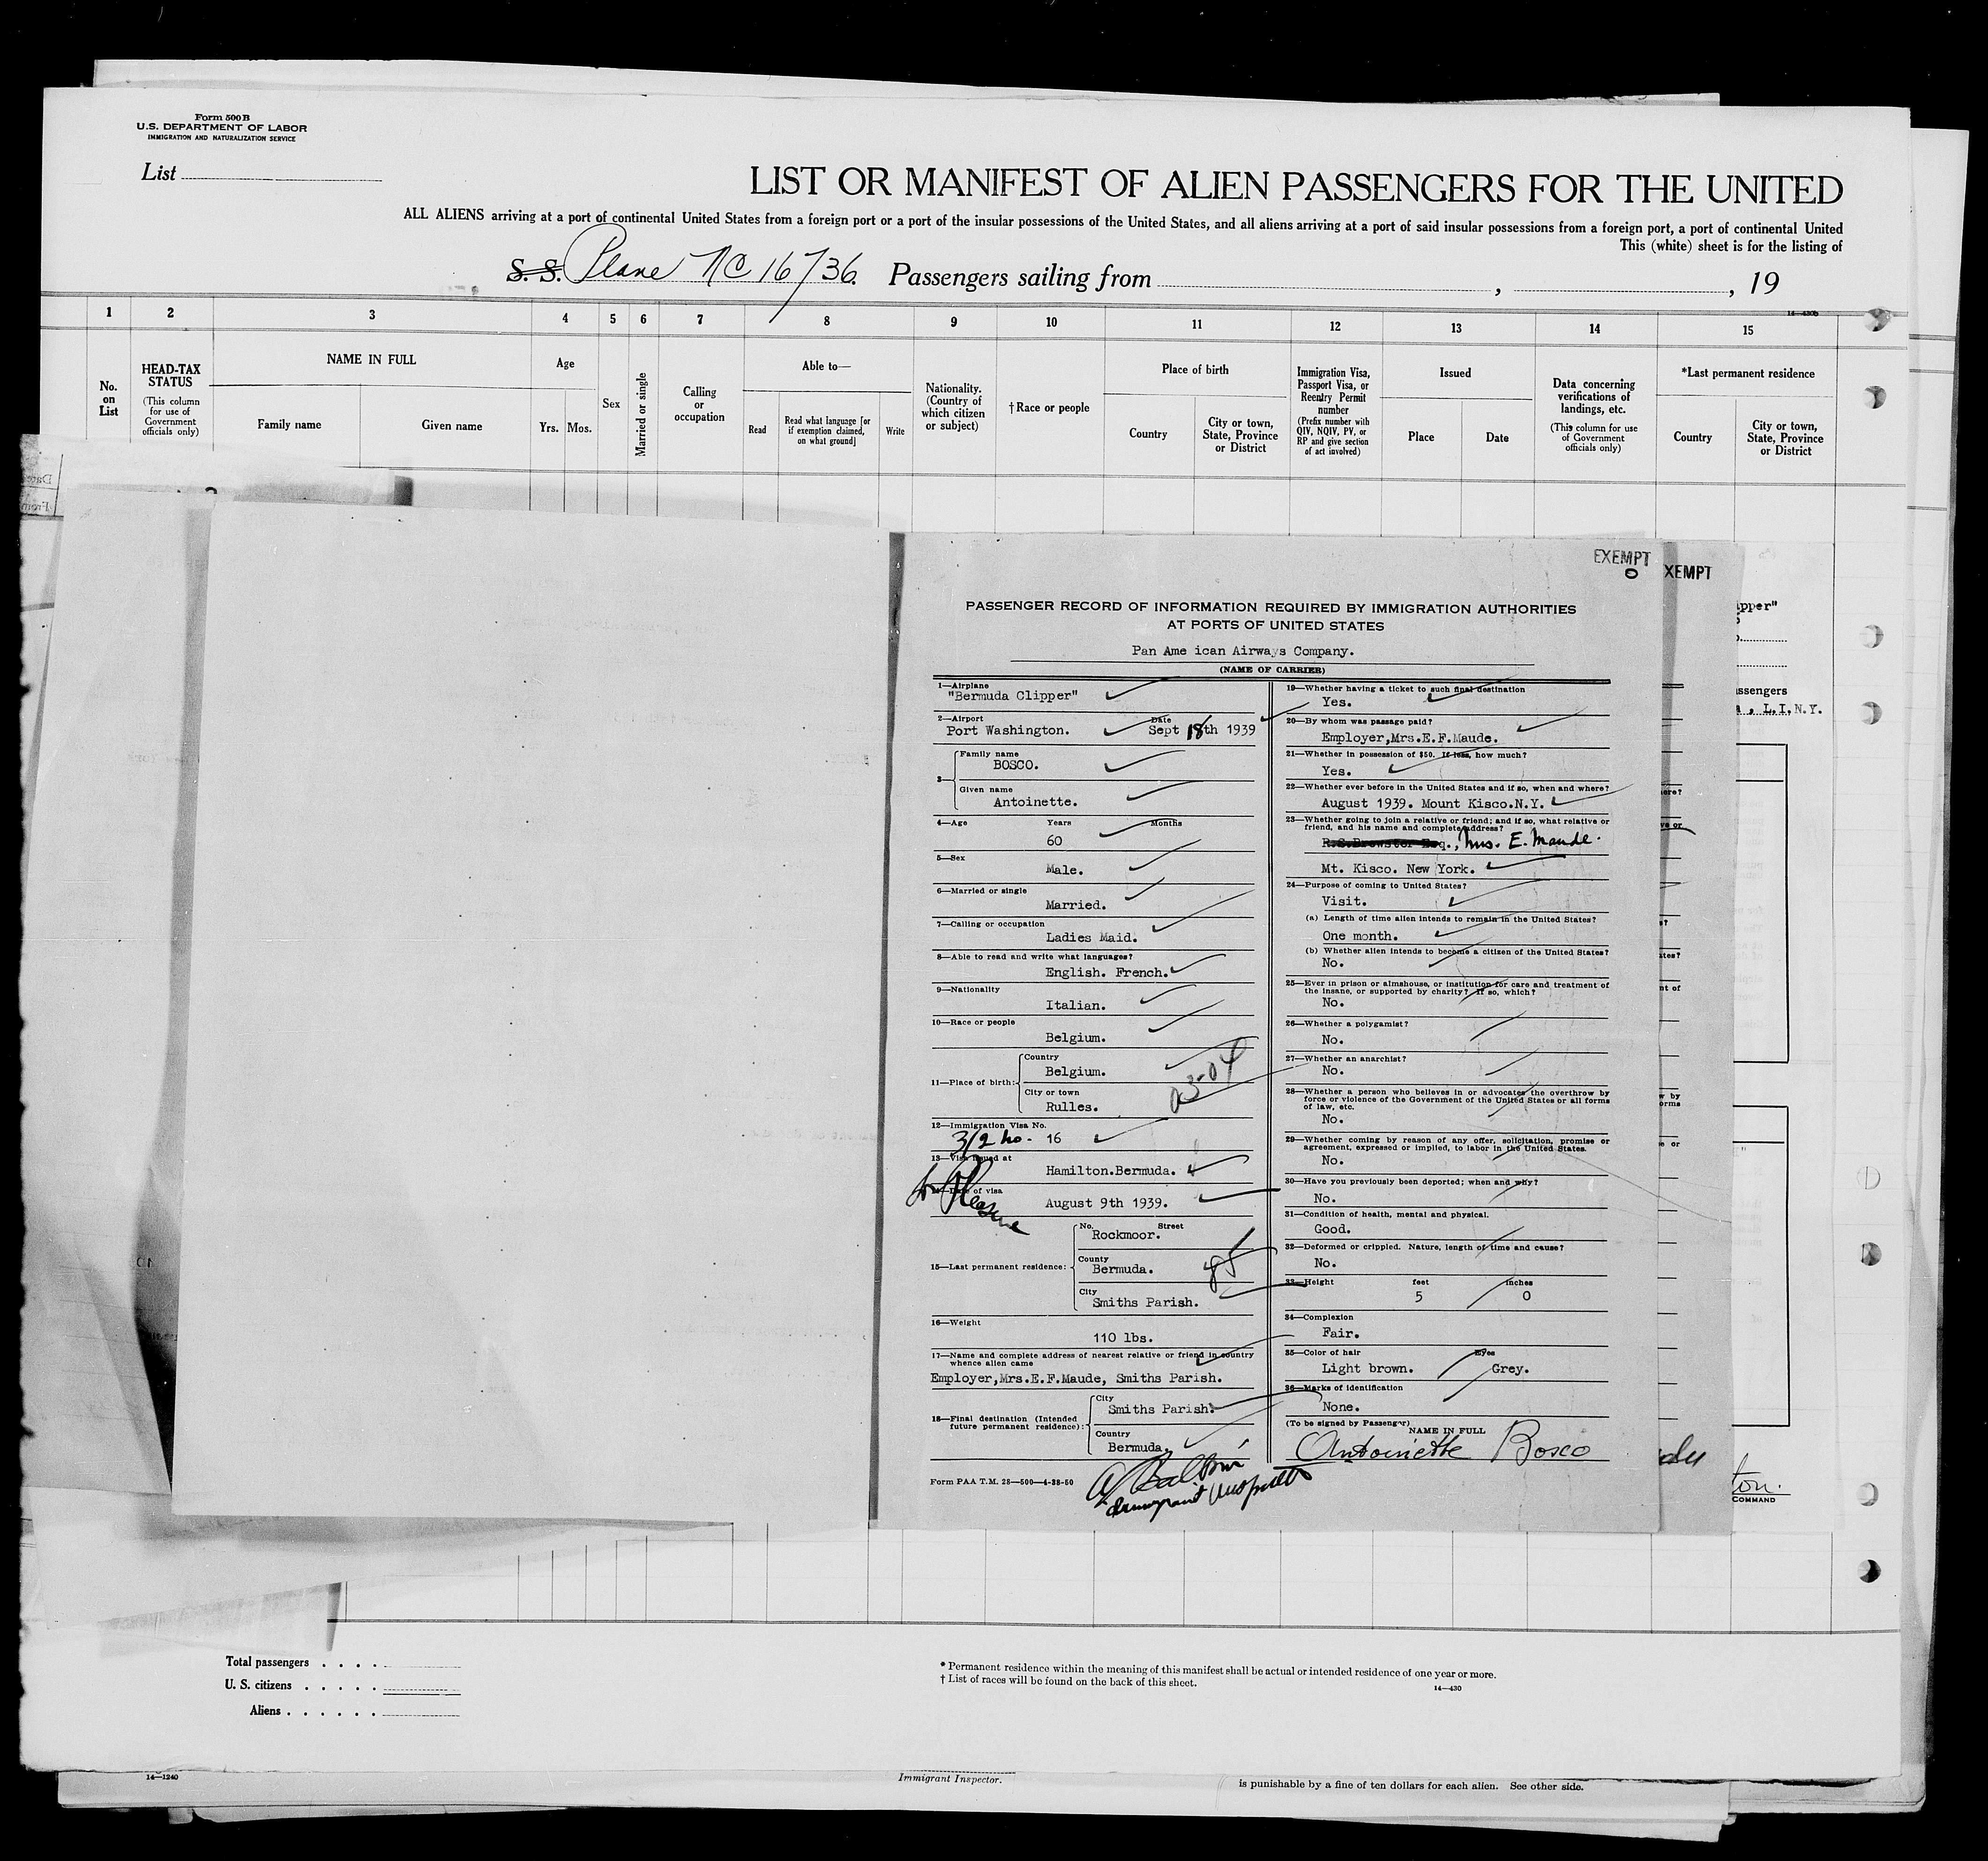 Form 500 B
U.S. DEPARTMENT OF LABOR
IMMIGRATION AND NATURALIZATION SERVICE
List
LIST OR MANIFEST OF ALIEN PASSENGERS FOR THE UNITED
ALL ALIENS arriving at a port of continental United States from a foreign port or a port of the insular possessions of the United States, and all aliens arriving at a port of said insular possessions from a foreign port, a port of continental United
This (white) sheet is for the listing of
S. S. Plane NC 16736 Passengers sailing from , , 19
14—430b
1 2 3 4 5 6 7 8 9 10 11 12 13 14 15
No. on List
HEAD-TAX STATUS
(This column for use of Government officials only)
NAME IN FULL
Family name Given name
Age
Yrs. Mos.
Sex
Married or single
Calling or occupation
Able to—
Read
Read what language [or if exemption claimed, on what ground]
Write
Nationality. (Country of which citizen or subject)
† Race or people
Place of birth
Country
City or town, State, Province or District
Immigration Visa, Passport Visa, or Reentry Permit number
(Prefix number with QIV, NQIV, PV, or RP and give section of act involved)
Issued
Place Date
Data concerning verifications of landings, etc.
(This column for use of Government officials only)
*Last permanent residence
Country
City or town, State, Province or District
EXEMPT
0
XEMPT
PASSENGER RECORD OF INFORMATION REQUIRED BY IMMIGRATION AUTHORITIES
AT PORTS OF UNITED STATES
Pan Ame ican Airways Company.
(NAME OF CARRIER)
1—Airplane
"Bermuda Clipper"
2—Airport Date
Port Washington. Sept 18th 1939
3—
Family name
BOSCO.
Given name
Antoinette.
4—Age Years Months
60
5—Sex
Male.
6—Married or single
Married.
7—Calling or occupation
Ladies Maid.
8—Able to read and write what languages?
English. French.
9—Nationality
Italian.
10—Race or people
Belgium.
11—Place of birth:
Country
Belgium.
City or town
Rulles.
03-04
12—Immigration Visa No.
3/2 no- 16
13—Visa issued at
Hamilton.Bermuda.
14—Date of visa
August 9th 1939.
Pleasure
15—Last permanent residence:
No. Street
Rockmoor.
County
Bermuda.
City
Smiths Parish.
85
16—Weight
110 lbs.
17—Name and complete address of nearest relative or friend in country
whence alien came
Employer,Mrs.E.F.Maude, Smiths Parish.
18—Final destination (Intended
future permanent residence):
City
Smiths Parish.
Country
Bermuda.
Form PAA T.M. 28—500—4-38-50
Immigrant Inspector
19—Whether having a ticket to such final destination
Yes.
20—By whom was passage paid?
Employer,Mrs.E.F.Maude.
21—Whether in possession of $50. If less, how much?
Yes.
22—Whether ever before in the United States and if so, when and where?
August 1939. Mount Kisco.N.Y.
23—Whether going to join a relative or friend; and if so, what relative or
friend, and his name and complete address?
R.S.Brewster Esq., Mrs. E. Maude.
Mt. Kisco. New York.
24—Purpose of coming to United States?
Visit.
(a) Length of time alien intends to remain in the United States?
One month.
(b) Whether alien intends to become a citizen of the United States?
No.
25—Ever in prison or almshouse, or institution for care and treatment of
the insane, or supported by charity? If so, which?
No.
26—Whether a polygamist?
No.
27—Whether an anarchist?
No.
28—Whether a person who believes in or advocates the overthrow by
force or violence of the Government of the United States or all forms
of law, etc.
No.
29—Whether coming by reason of any offer, solicitation, promise or
agreement, expressed or implied, to labor in the United States.
No.
30—Have you previously been deported; when and why?
No.
31—Condition of health, mental and physical.
Good.
32—Deformed or crippled. Nature, length of time and cause?
No.
33—Height feet inches
5 0
34—Complexion
Fair.
35—Color of hair Eyes
Light brown. Grey.
36—Marks of identification
None.
(To be signed by Passenger)
NAME IN FULL
Antoinette Bosco
pper"
ssengers
, L.I.N.Y.
ton.
COMMAND
Total passengers . . . .
U. S. citizens . . . . .
Aliens . . . . . .
* Permanent residence within the meaning of this manifest shall be actual or intended residence of one year or more.
† List of races will be found on the back of this sheet.
14—430
14—1240
Immigrant Inspector.
is punishable by a fine of ten dollars for each alien. See other side.